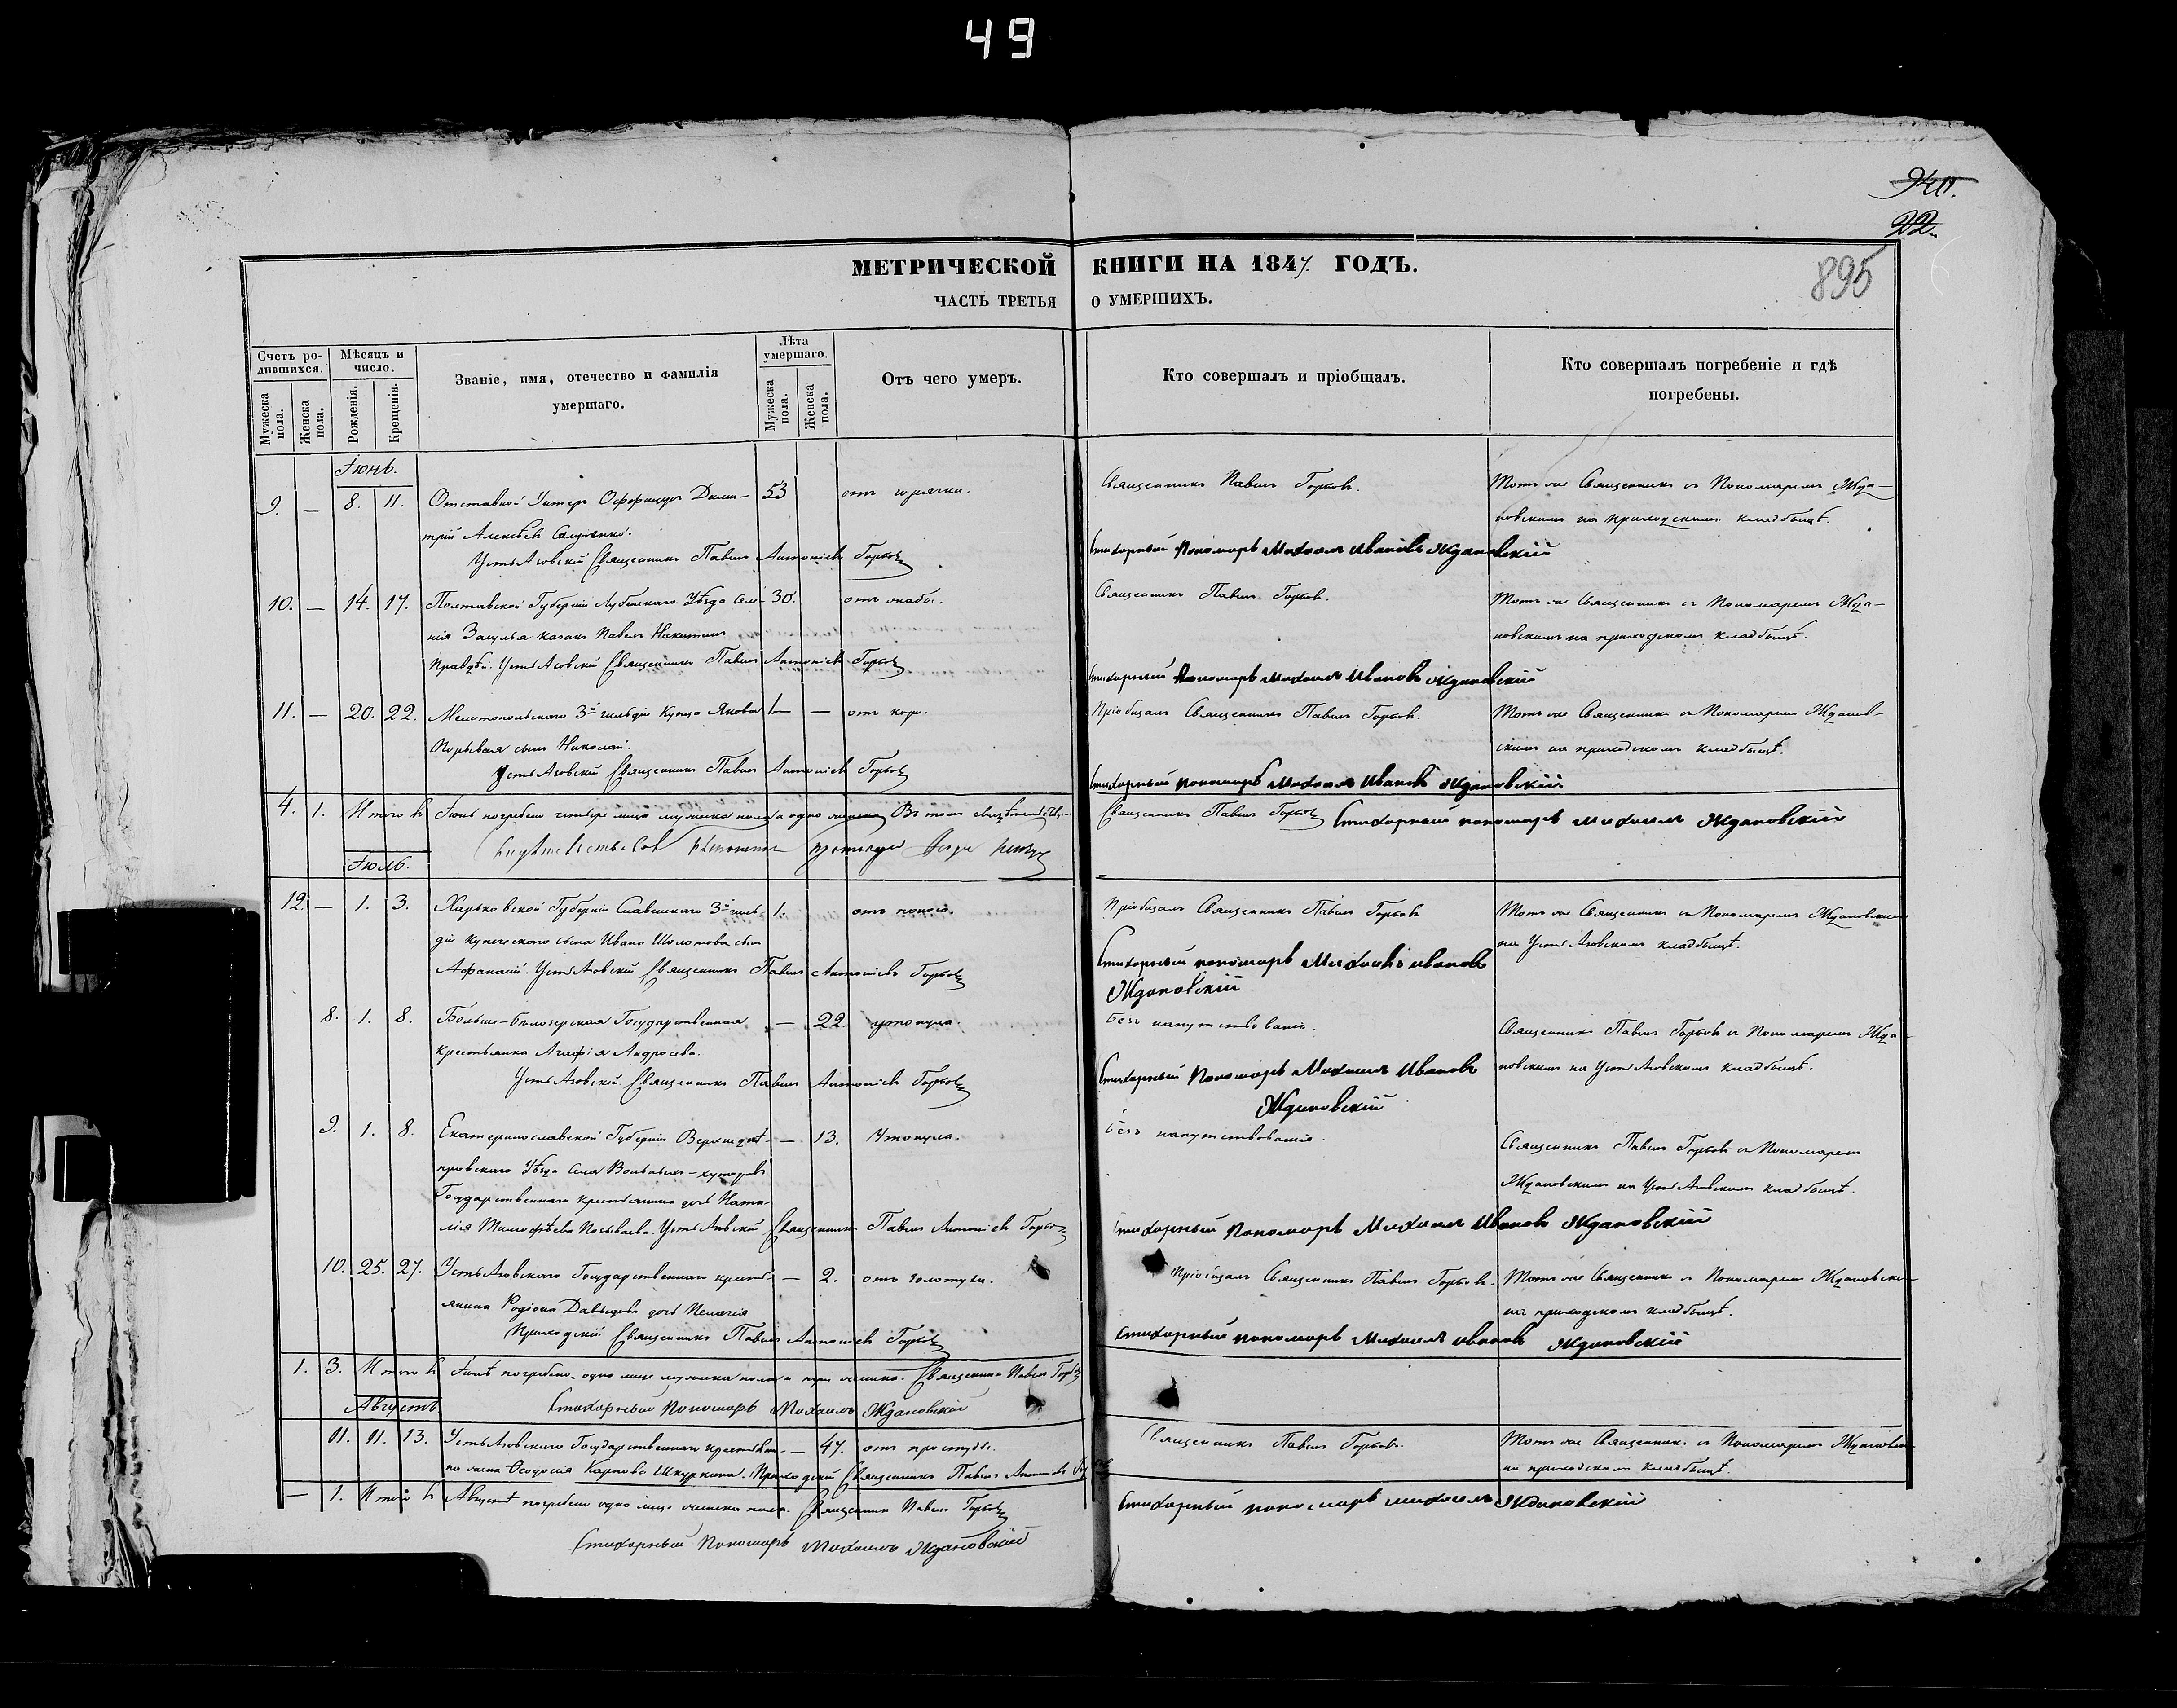 49
940.
22.
895
МЕТРИЧЕСКОЙ КНИГИ НА 1847. ГОДЪ.
ЧАСТЬ ТРЕТЬЯ О УМЕРШИХЪ.
Счетъ родившихся.
Мужеска пола.
Женска пола.
Мѣсяцъ и число.
Рожденія.
Крещенія.
Званіе, имя, отечество и фамилія умершаго.
Лѣта умершаго.
Мужеска пола.
Женска пола.
Отъ чего умеръ.
Кто совершалъ и пріобщалъ.
Кто совершалъ погребеніе и гдѣ погребены.
Іюнь.
9. — 8. 11. Отставной Унтеръ Офорицеръ Дими- 53 отъ горячки. Священникъ Павелъ Горбов. Тотъ же Священникъ съ Пономаремъ Жда-
трій Алексѣевъ новскимъ на приходскомъ кладбищѣ.
УстьАзовскій Священникъ Павелъ Антоніевъ Горбов Стихарный Пономарь Михаилъ Ивановъ Ждановскій
10. — 14. 17. Полтавской Губерніи Лубенскаго Уѣзда Се- 30. отъ жабы. Священникъ Павелъ Горбов. Тотъ же Священникъ съ Пономаремъ Жда-
нія Защулья казакъ Павелъ Никитинъ новскимъ на приходскомъ кладбищѣ.
УстьАзовскій Священникъ Павелъ Антоніевъ Горбов Стихарный Пономарь Михаилъ Ивановъ Ждановскій
11. — 20. 22. Мелитопольскаго 3й гильдіи Купца Якова 1 — — отъ кори. Пріобщалъ Священникъ Павелъ Горбов. Тотъ же Священникъ съ Пономаремъ Жданов-
сынъ Николай. скимъ на приходскомъ кладбищѣ.
УстьАзовскій Священникъ Павелъ Антоніевъ Горбов Стихарный пономарь Михаилъ Ивановъ Ждановскій
4. 1. Итого въ Іюнѣ погребено четыре лица мужеска пола и одно женска Въ томъ Священникъ Павелъ Горбов Стихарный пономарь Михаилъ Ждановскій
Іюль.
12. — 1. 3. Харьковской Губерніи Славенскаго 3й гиль- 1. отъ поноса. Пріобщалъ Священникъ Павелъ Горбовъ Тотъ же Священникъ съ Пономаремъ Ждановскимъ
діи купеческаго сына Ивана Шолотова сынъ на УстьАзовскомъ кладбищѣ.
Афанасій. УстьАзовскій Священникъ Павелъ Антоніевъ Горбов Стихарный пономарь Михаилъ Ивановъ
Ждановскій
8. 1. 8. Больше-Бѣлозерская Государственная — 22. утонула. безъ напутствованія. Священникъ Павелъ Горбовъ съ Пономаремъ Жда-
крестьянка Агафія Андросева. новскимъ на УстьАзовскомъ кладбищѣ.
УстьАзовскій Священникъ Павелъ Антоніевъ Горбов Стихарный Пономарь Михаилъ Ивановъ
Ждановскій
9. 1. 8. Екатеринославской Губерніи Верхнеднѣ- — 13. Утонула. безъ напутствованія. Священникъ Павелъ Горбовъ съ Пономаремъ
провскаго Уѣзда Села Вольныхъ-хуторовъ Ждановскимъ на УстьАзовскомъ кладбищѣ.
Государственнаго крестьянина дочь Ната-
лія Тимофѣева УстьАзовскій Священникъ Павелъ Антоніевъ Горбов Стихарный Пономарь Михаилъ Ивановъ Ждановскій
10. 25. 27. УстьАзовскаго Государственнаго кресть- — 2. отъ золотухи. Пріобщалъ Священникъ Павелъ Горбовъ. Тотъ же Священникъ съ Пономаремъ Ждановскимъ
янина Родіона Давыдова дочь Пелагія на приходскомъ кладбищѣ.
Приходскій Священникъ Павелъ Антоніевъ Горбов Стихарный пономарь Михаилъ Ивановъ Ждановскій
1. 3. Итого въ Іюлѣ погребено одно лице мужеска пола и три женска. Священникъ Павелъ Горбов
Августъ Стихарный Пономарь Михаилъ Ждановскій
11. 11. 13. УстьАзовскаго Государственнаго крестьяни- — 47. отъ простуды. Священникъ Павелъ Горбовъ. Тотъ же Священникъ съ Пономаремъ
на жена Ѳеодосія Карпова Шкуркина. Приходскій Священникъ Павелъ Антоніевъ на приходскомъ кладбищѣ.
— 1. Итого въ Августѣ погребено одно лице женска пола. Священникъ Павелъ Горбов Стихарный пономарь Михаилъ Ждановскій
Стихарный Пономарь Михаилъ Ждановскій